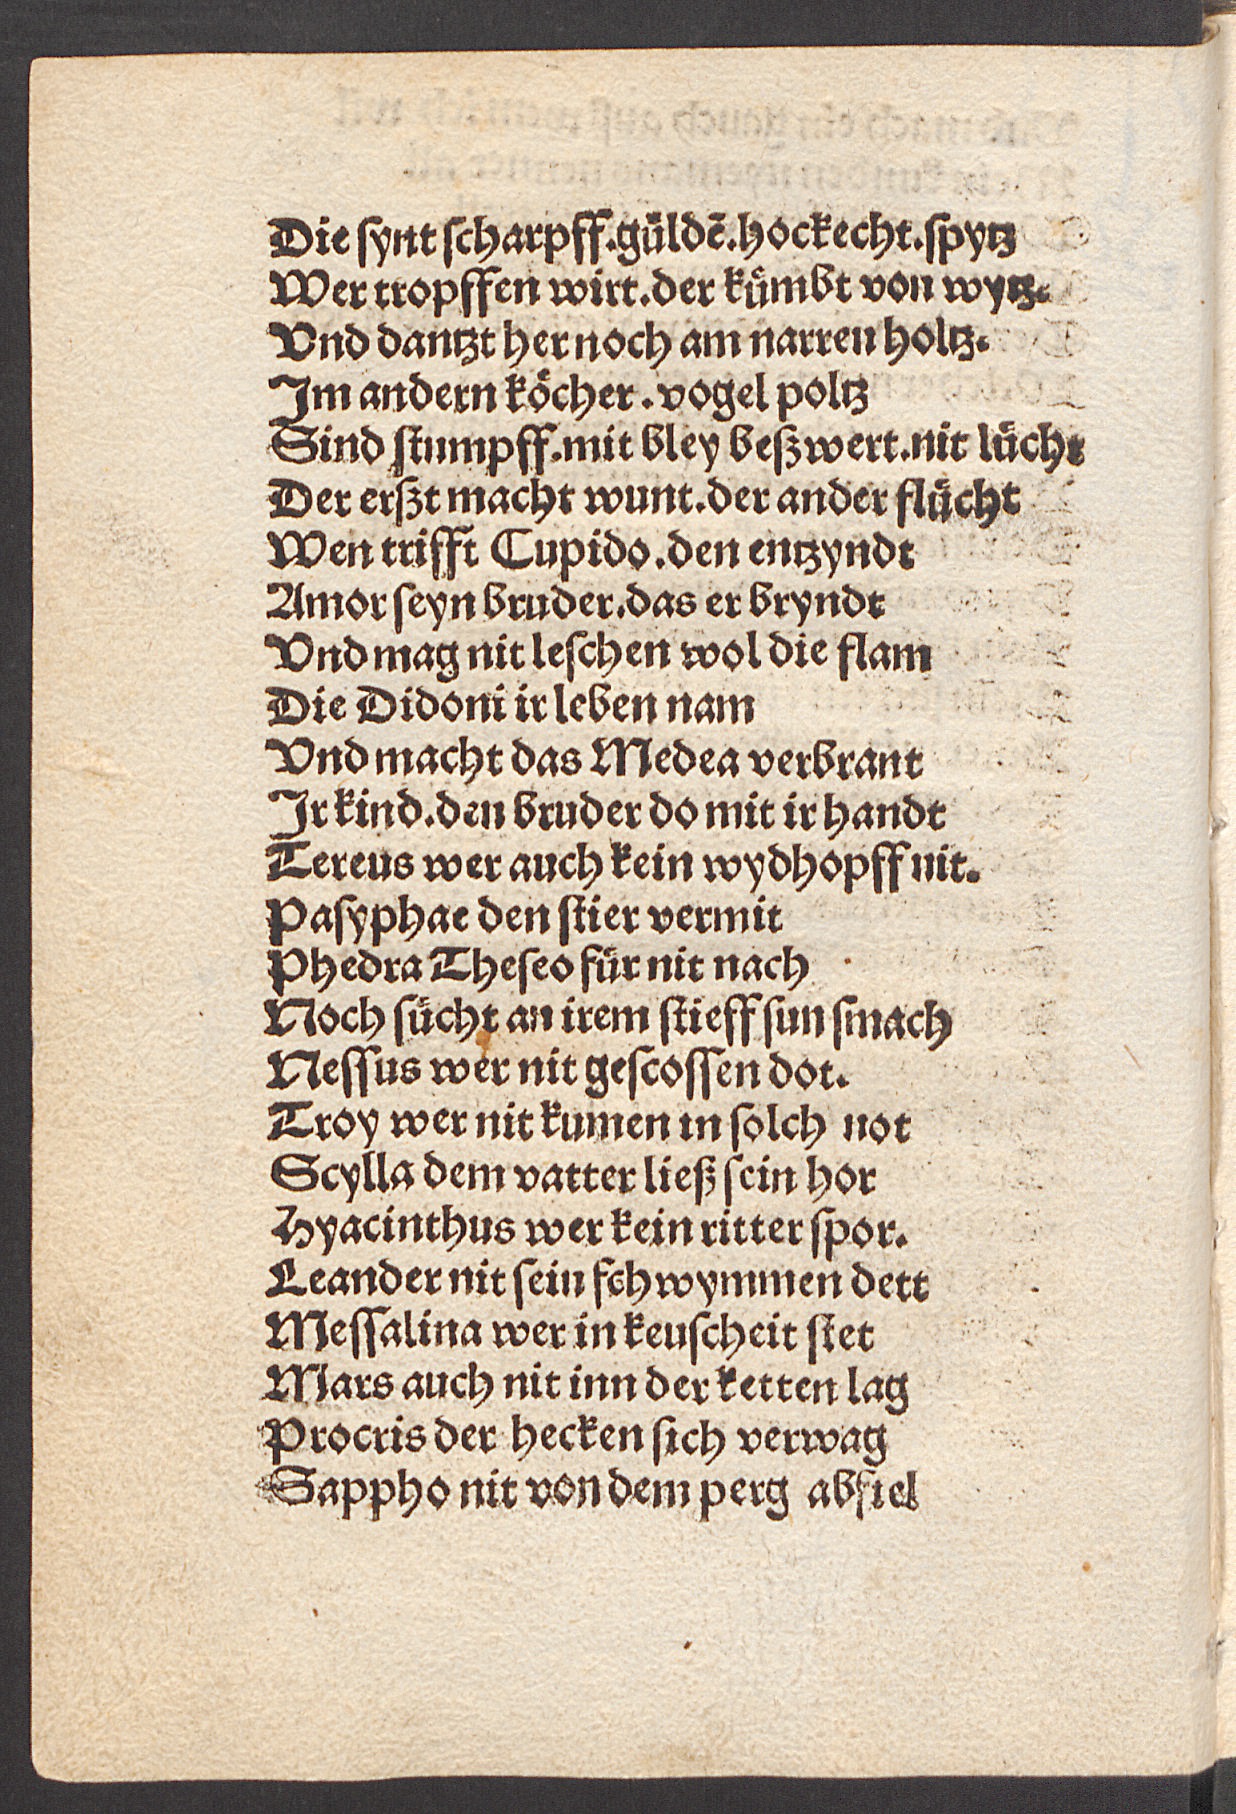 Die ſynt ſcharpff.guͤldē.hockecht.ſpytz
Wer tropffen wirt.der kuͤmbt von wytz.
Vnd dantzt her noch am narren holtz.
Im andern koͤcher.vogel poltz
Sind ſtumpff.mit bley beßwert.nit luͤcht
Der erßt macht wunt.der ander fluͤcht
Wen trifft Cupido.den entzyndt
Amor ſeyn bruder.das er bryndt
Vnd mag nit leſchen wol die flam
Die Didoni ir leben nam
Vnd macht das Medea verbrant
Ir kind.den bruder do mit ir handt
Tereus wer auch kein wydhopff nit.
Paſyphae den ſtier vermit
Phedra Theſeo fuͤr nit nach
Noch ſuͤcht an irem ſtieff ſun ſmach
Neſſus wer nit geſcoſſen dot.
Troy wer nit kumen in ſolch not
Scylla dem vatter ließ ſein hor
Hyacinthus wer kein ritter ſpor.
Leander nit ſein ſchwymmen dett
Meſſalina wer in keuſcheit ſtet
Mars auch nit inn der ketten lag
Procris der hecken ſich verwag
Sappho nit von dem perg abfiel